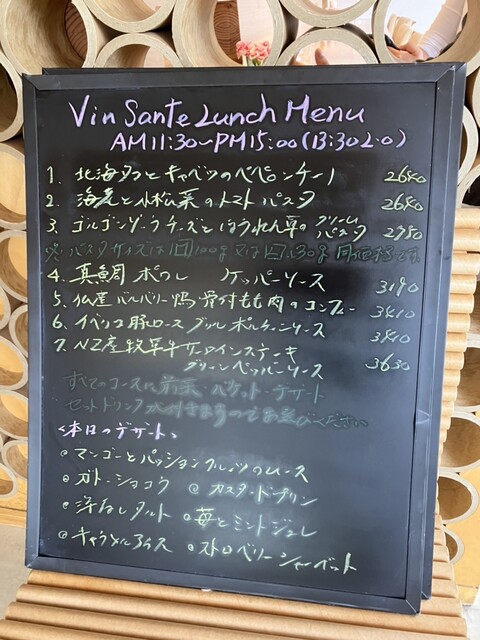 Vin Sante Lunch Menu
AM11:30~PM15:00(13:30L.O)
1. 北海タコとキャベツのペペロンチーノ 2640
2. 海老と小松菜のトマトパスタ 2640
3. ゴルゴンゾーラチーズとほうれん草のクリームパスタ 2750
※パスタサイズは 100g 又は 130g 同価格です。
4. 真鯛ポワレ ケッパーソース
5. 仏産バルバリー鴨骨付もも肉のコンフィー 3410
6. イベリコ豚ロースグリルポルチーニソース 3410
7. NZ産牧草牛サーロインステーキ
グリーンペッパーソース 3630
すべてのコースに前菜・バケット・デザート
セットドリンクが付きますのでお選びください
<本日のデザート>
◎マンゴーとパッションフルーツのムース
◎ガトーショコラ ◎カスタードプリン
◎洋なしタルト ◎苺とミントジュレ
◎キャラメルアイス ◎ストロベリーシャーベット